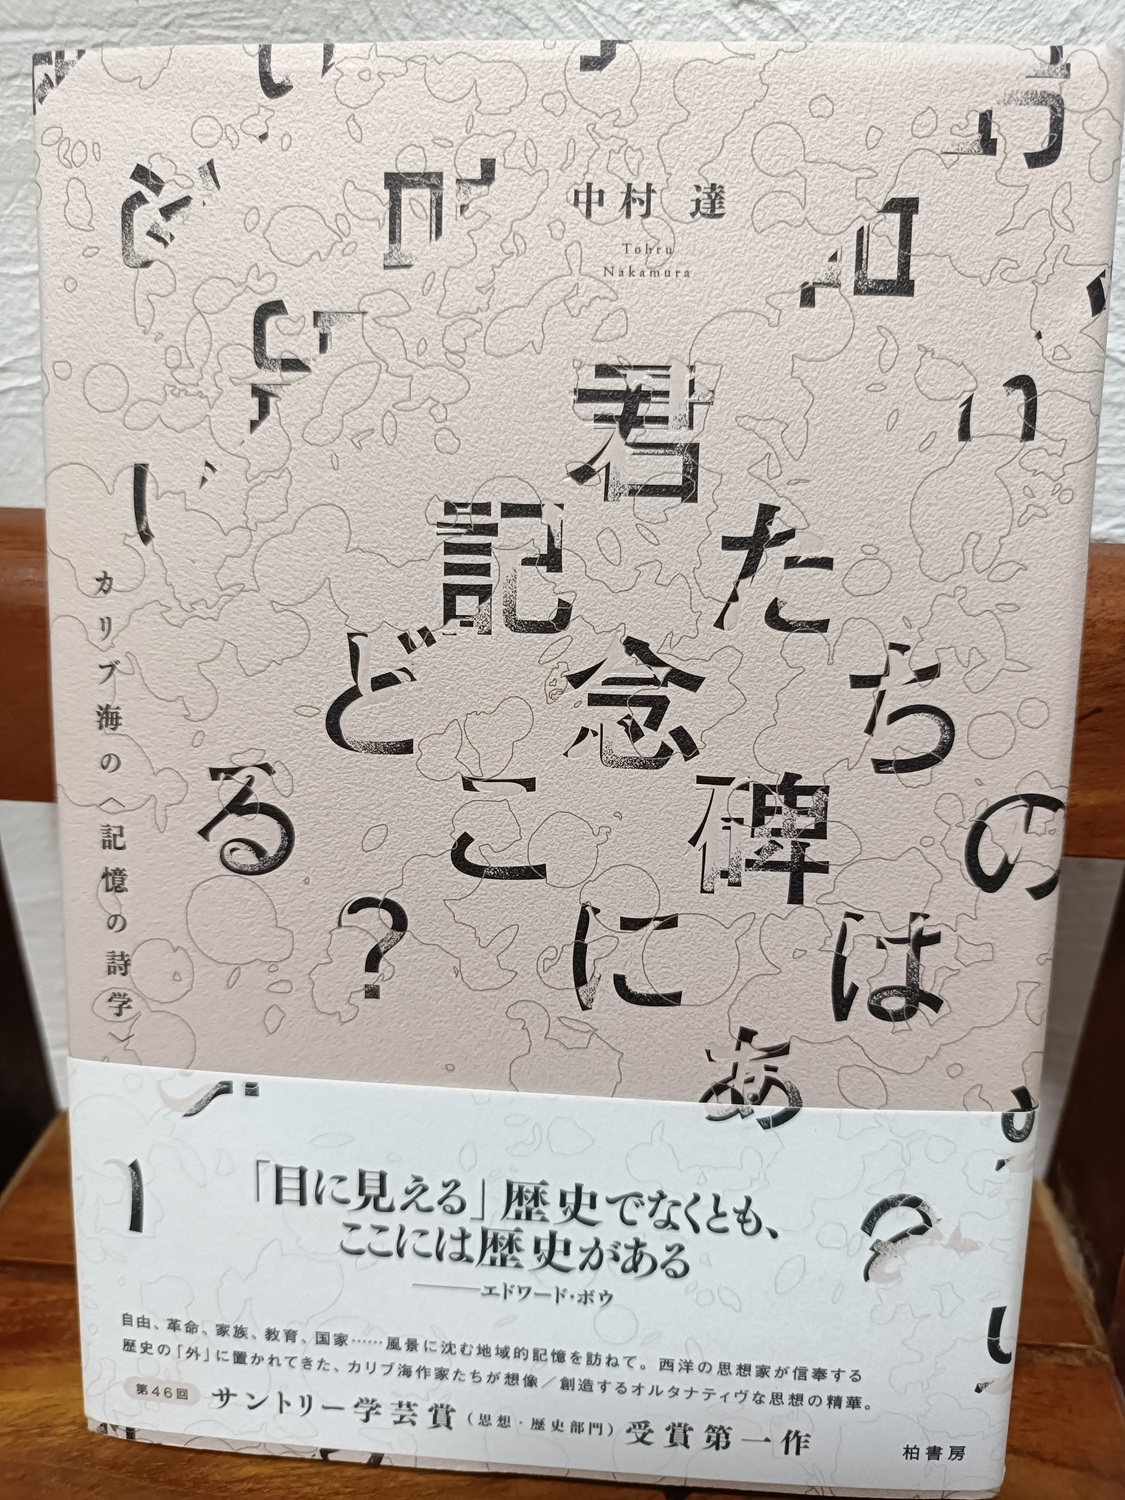 中村 達
Tohru
Nakamura
君たちの
記念碑は
どこに
ある?
カリブ海の〈記憶の詩学〉
「目に見える」歴史でなくとも、
ここには歴史がある
——エドワード・ボウ
自由、革命、家族、教育、国家……風景に沈む地域的記憶を訪ねて。西洋の思想家が信奉する
歴史の「外」に置かれてきた、カリブ海作家たちが想像／創造するオルタナティヴな思想の精華。
第46回 サントリー学芸賞(思想・歴史部門)受賞第一作
柏書房